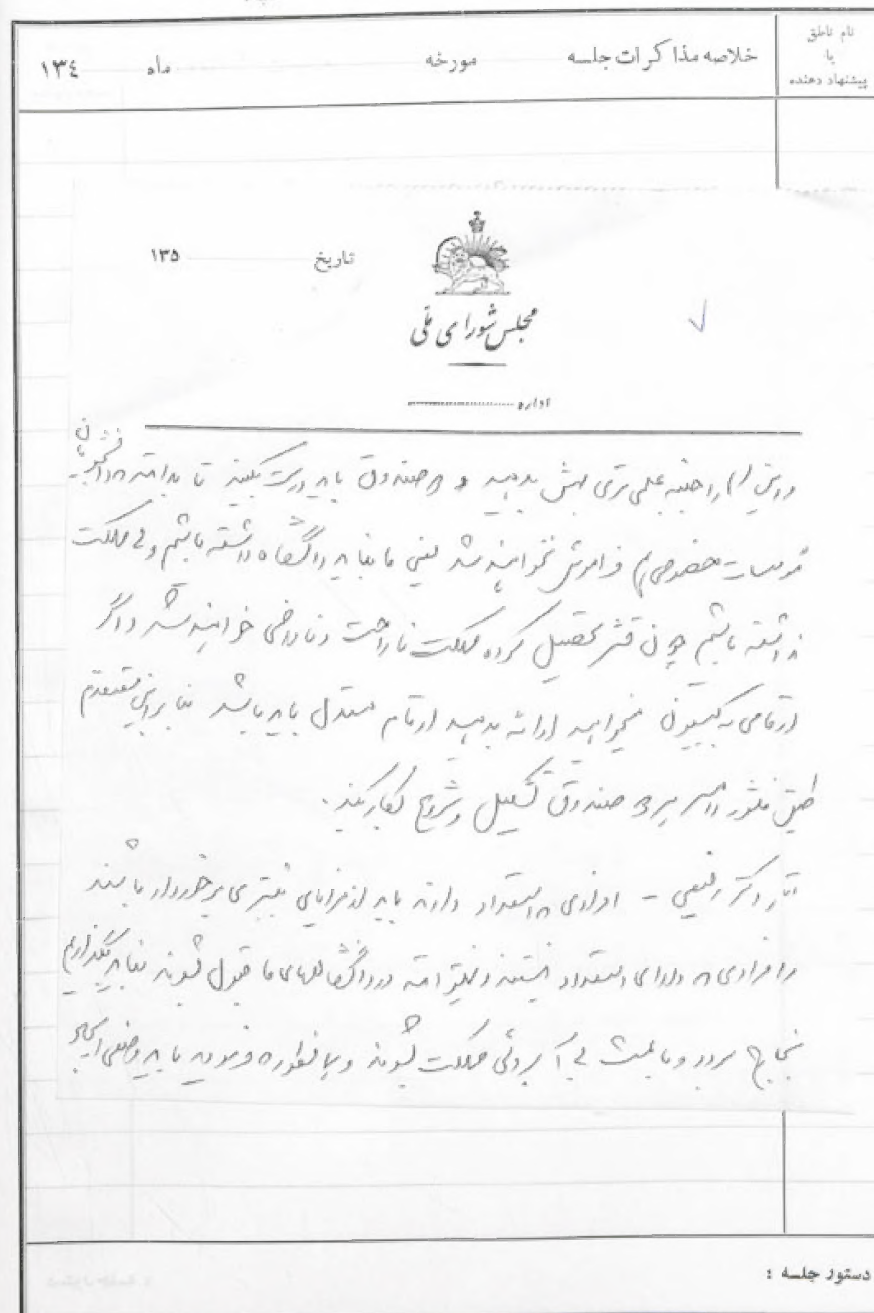 نام ناطق
یا
پیشنهاد دهنده
خلاصه مذاکرات جلسه مورخه ماه ۱۳۴
تاریخ ۱۳۵
مجلس شورای ملی
اداره
را جنبه علمی‌تری بهش بدهید و صندوق باید درست بکنید تا
خصوصی را فراموش نخواهند شد یعنی ما نباید دانشگاه داشته باشیم ولی مملکت
نداشته باشیم چون قشر تحصیل کرده مملکت ناراحت و ناراضی خواهند شد و اگر
ارقامی به کمیسیون میخواهید ارائه بدهید ارقام مستدل باید باشد بنابراین معتقدم
طبق منشور صندوق تشکیل و شروع بکار کنید.
دکتر رفیعی - افرادی که استعداد دارند باید از مزایای بیشتری برخوردار باشند
و افرادی که دارای استعداد نیستند و نتوانسته در دانشگاههای ما قبول شوند نباید بگذاریم
بخارج بروند و باعث بی آبروئی مملکت شوند و همانطور که فرمودید باید وضعی ایجاد
دستور جلسه :